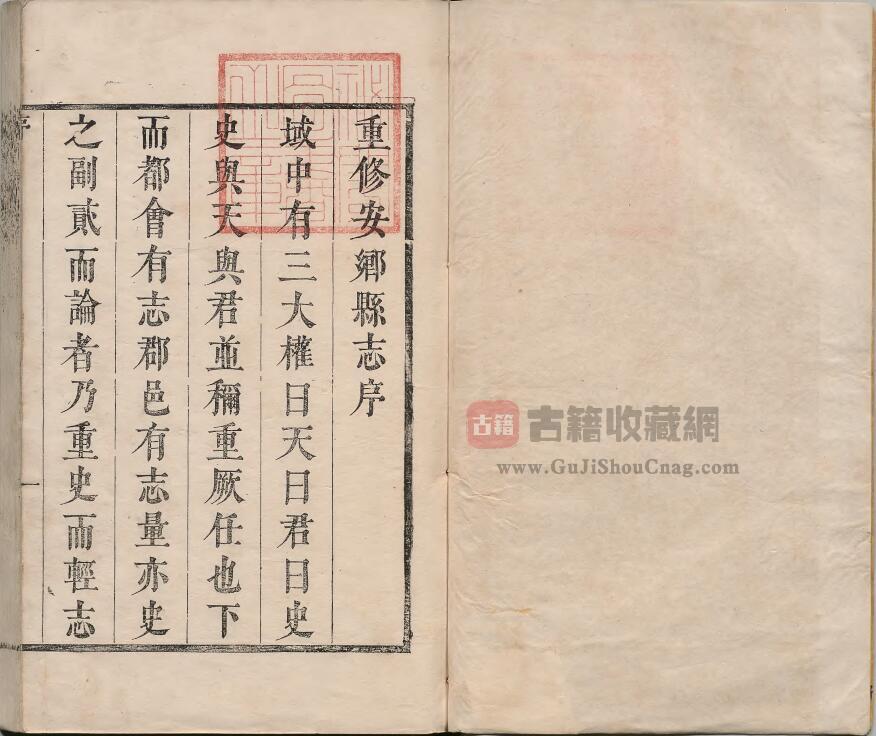 重修安鄉縣志序
域中有三大權曰天曰君曰史
史與天與君並稱重厥任也下
而都會有志郡邑有志量亦史
之副貳而論者乃重史而輕志
序
一
古籍
古籍收藏網
www.GuJiShouCnag.com